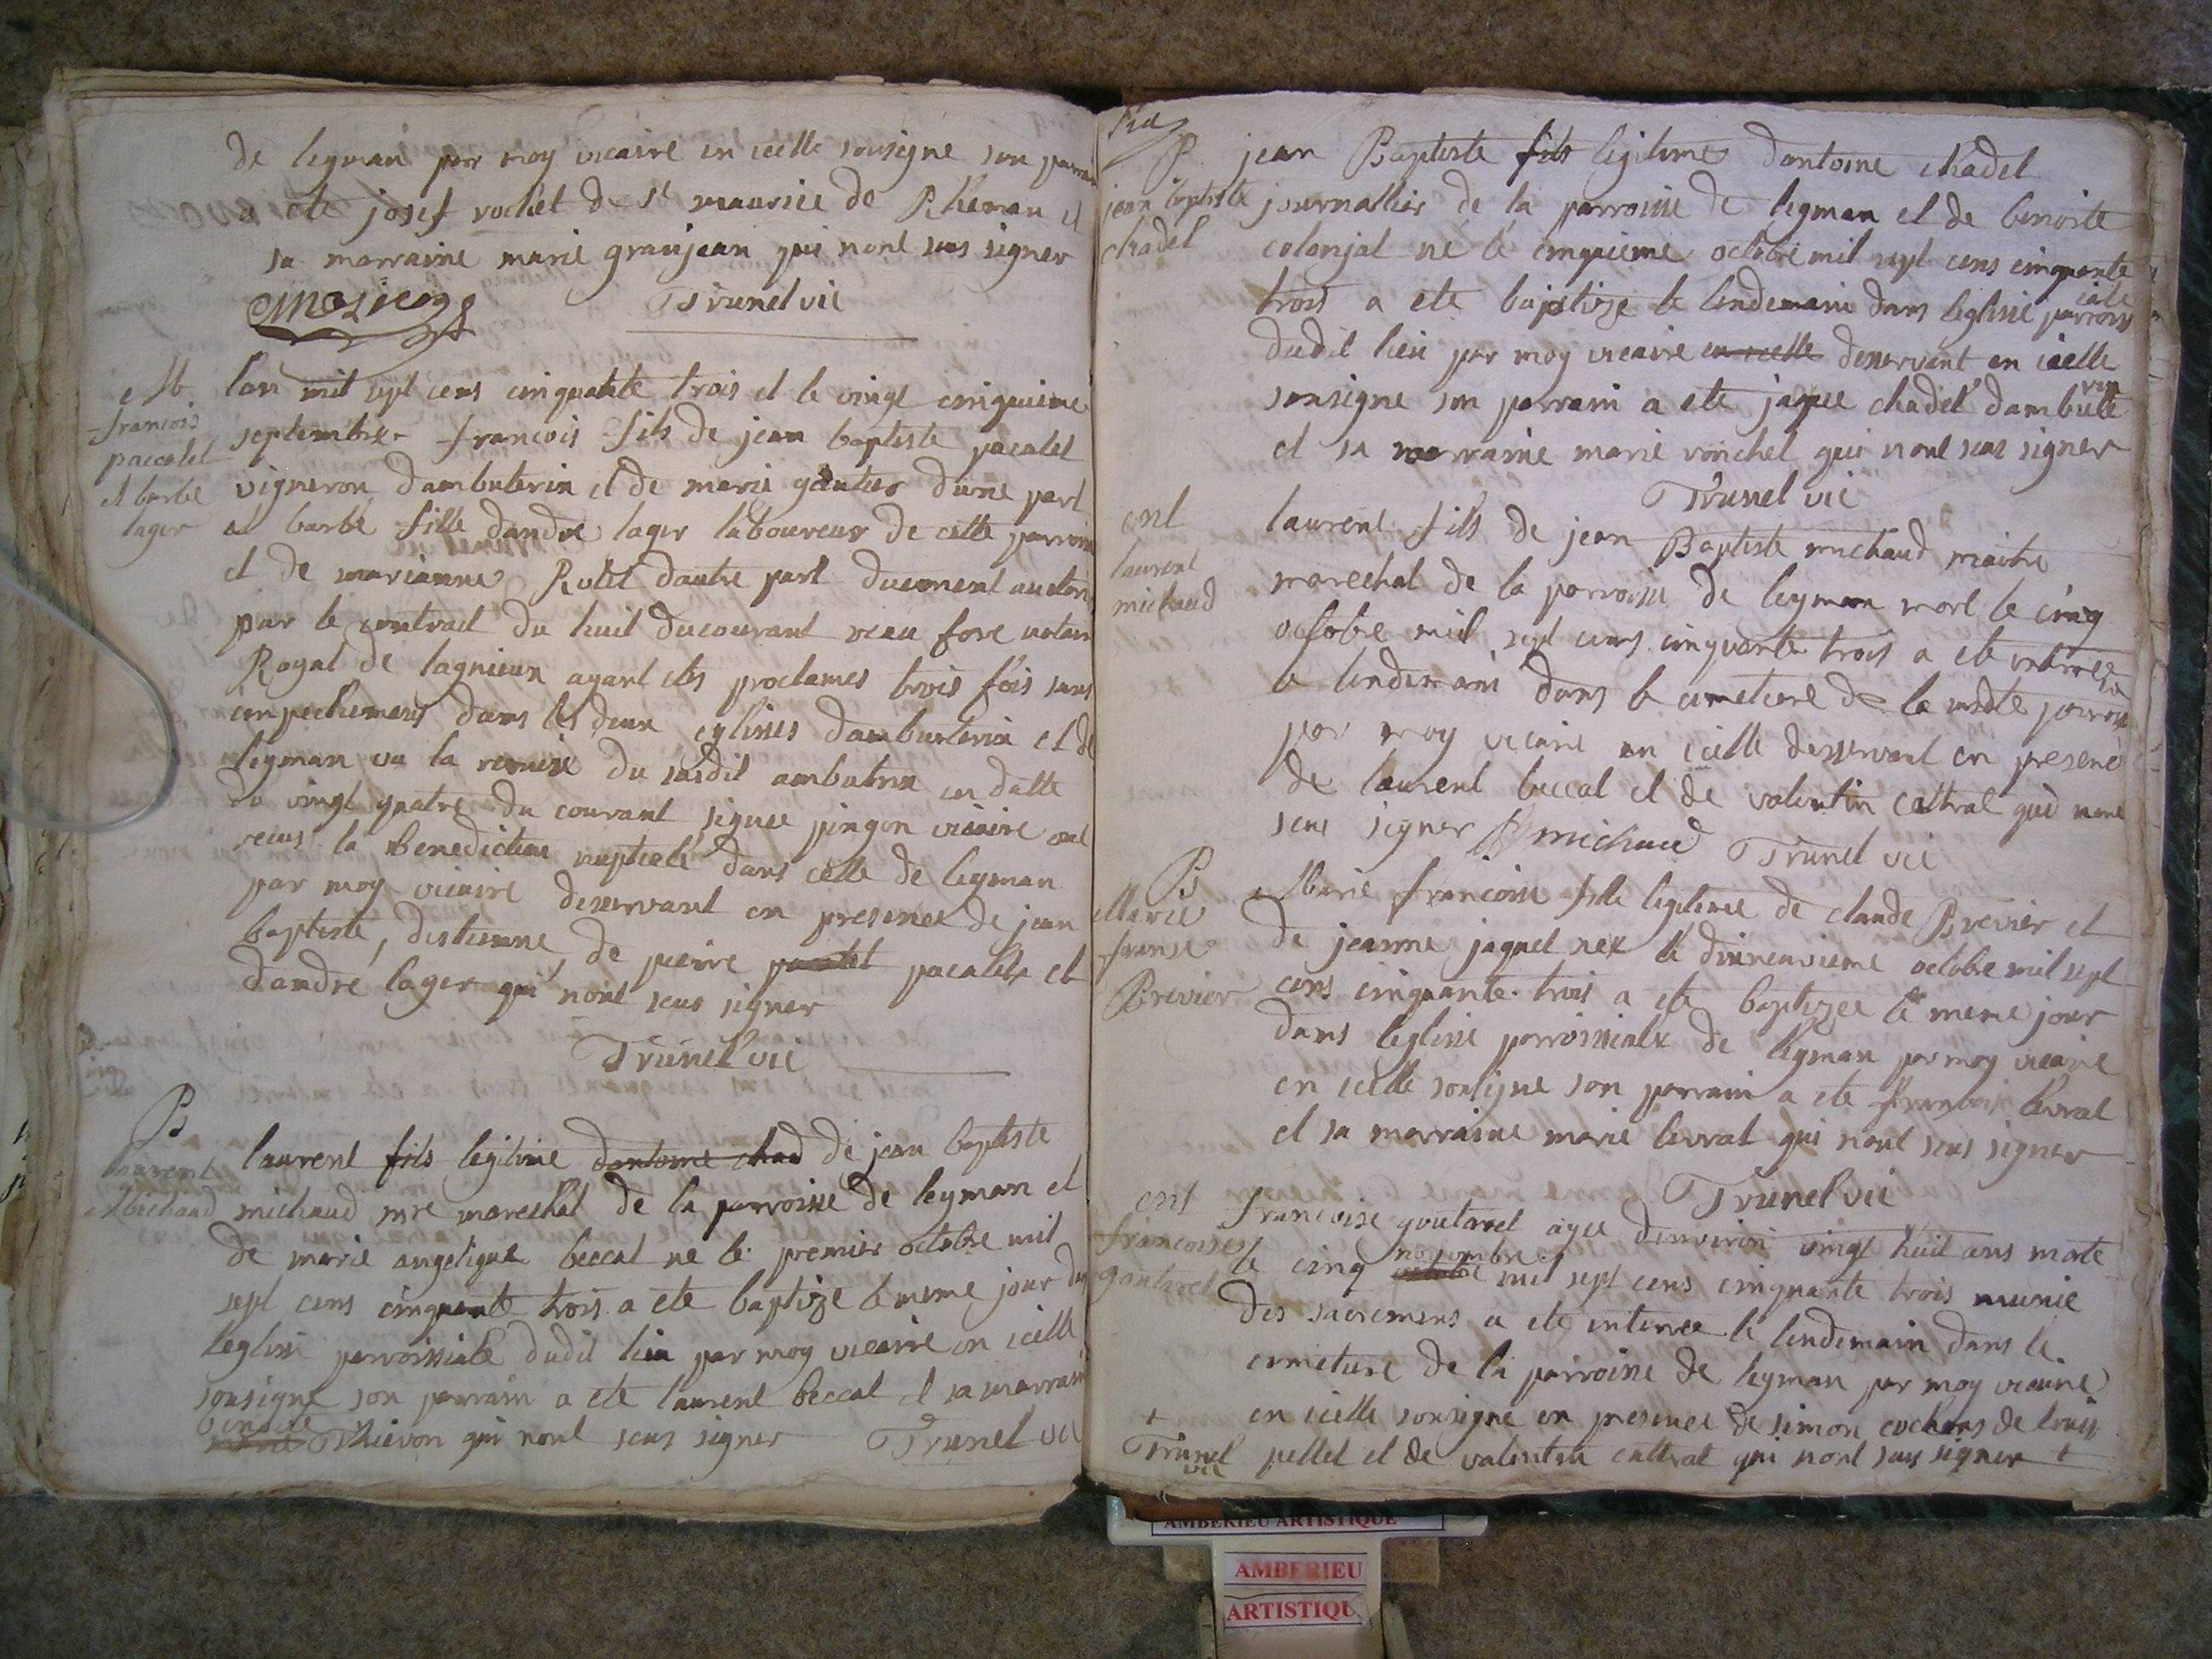 de leyman par moy vicaire en icelle sousigne son parrain
a ete josef rochet de St maurice de Rheman et
sa marraine marie granjean qui nont seus signer
Trunel vic
M
francois
paccalet
et barbe
lager
lan mil sept cens cinquante trois et le vingt cinquieme
septembre francois fils de jean baptiste pacalet
vigneron dambuterin et de marie gautier dune part
et barbe fille dandre lager laboureur de cette parroisse
et de marianne Rulet dautre part duement
par le contrait du huit ducourant notaire
Royal de lagnieux ayant etes proclames trois fois sans
impechement dans les deux eglises dambuterin et de
leyman vu la remise du susdit ambutrin en datte
du vingt quatre du courant signee pingon vicaire ont
recus la benediction nuptiale dans celle de leyman
par moy vicaire deservant en presence de jean
baptiste, destienne, de pierre pacalet pacalet et
dandré lager qui nont seus signer
Trunel vic
B
laurent
Michaud
laurent fils legitime dantoine chad de jean baptiste
michaud mre marechal de la parroisse de leyman et
de marie angelique beccat ne le premier octobre mil
sept cens cinquante trois a ete baptize le meme jour dans
leglise parroissiale dudit lieu par moy vicaire en icelle
sousigne son parrain a ete laurent beccat et sa marraine
benoite Thievon qui nont seus signer Trunel vic
B
jean baptiste
chadel
jean Baptiste fils legitime dantoine chadel
journallier de la parroisse de leyman et de benoite
colonjat né le cinquieme octobre mil sept cens cinquante
trois a ete baptize le lendemain dans leglise parroissiale
dudit lieu par moy vicaire en icelle deservant en icelle
sousigne son parrain a ete jaque chadel dambuterin
et sa marraine marie ronchet qui nont seus signer
Trunel vic
ent
laurent
michaud
laurent fils de jean Baptiste michaud maitre
marechal de la parroisse de leyman mort le cinq
octobre mil sept cens cinquante trois a ete enterre
le lendemain dans le cimetiere de la susdte parroisse
par moy vicaire en icelle desservant en presence
de laurent beccat et de valentin cattrat qui nont
seus signer michaud Trunel vic
B
Marie
franse
Brevier
Marie francoise fille legitime de claude Brevier et
de jeanne jaquet nex le dixneuvieme octobre mil sept
cens cinquante trois a ete baptizee le meme jour
dans leglise parroissiale de leyman par moy vicaire
en icelle sousigne son parrain a ete francois levrat
et sa marraine marie levrat qui nont seus signer
Trunel vic
ent
francoise
goutarel
francoise goutarel agee denviron vingt huit ans morte
le cinq octobre novembre mil sept cens cinquante trois munie
des sacremens a ete enterree le lendemain dans le
cimetiere de la parroisse de leyman par moy vicaire
en icelle sousigne en presence de simon cochons de louis
pellet et de valentin cattrat qui nont seus signer +
+
Trunel
vic
AMBERIEU ARTISTIQUE
AMBERIEU
ARTISTIQU